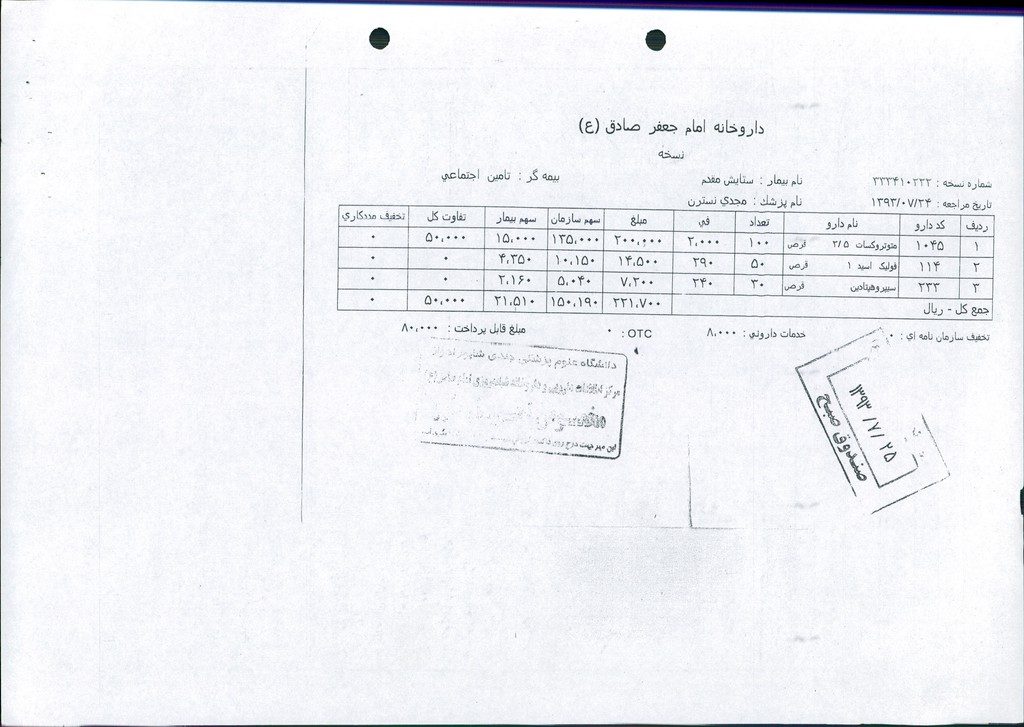 داروخانه امام جعفر صادق (ع)
نسخه
شماره نسخه : ۳۳۳۴۱۰۲۳۲ نام بیمار : ستایش مقدم بیمه گر : تامین اجتماعي
تاریخ مراجعه : ۱۳۹۳/۰۷/۲۴ نام پزشك : مجدي نسترن
ردیف کد دارو نام دارو تعداد في مبلغ سهم سازمان سهم بیمار تفاوت کل تخفیف مددکاري
۱ ۱۰۴۵ متوتروکسات ۲/۵ قرص ۱۰۰ ۲،۰۰۰ ۲۰۰،۰۰۰ ۱۳۵،۰۰۰ ۱۵،۰۰۰ ۵۰،۰۰۰ ۰
۲ ۱۱۴ فولیک اسید ۱ قرص ۵۰ ۲۹۰ ۱۴،۵۰۰ ۱۰،۱۵۰ ۴،۳۵۰ ۰ ۰
۳ ۲۳۳ سیپروهپتادین قرص ۳۰ ۲۴۰ ۷،۲۰۰ ۵،۰۴۰ ۲،۱۶۰ ۰ ۰
جمع کل - ریال ۲۲۱،۷۰۰ ۱۵۰،۱۹۰ ۲۱،۵۱۰ ۵۰،۰۰۰ ۰
تخفیف سازمان نامه اي : ۰ خدمات داروئي : ۸،۰۰۰ OTC : ۰ مبلغ قابل پرداخت : ۸۰،۰۰۰
دانشگاه علوم پزشکی جندی شاپور اهواز
۱۳۹۳ /۷/ ۲۵
صندوق صبح